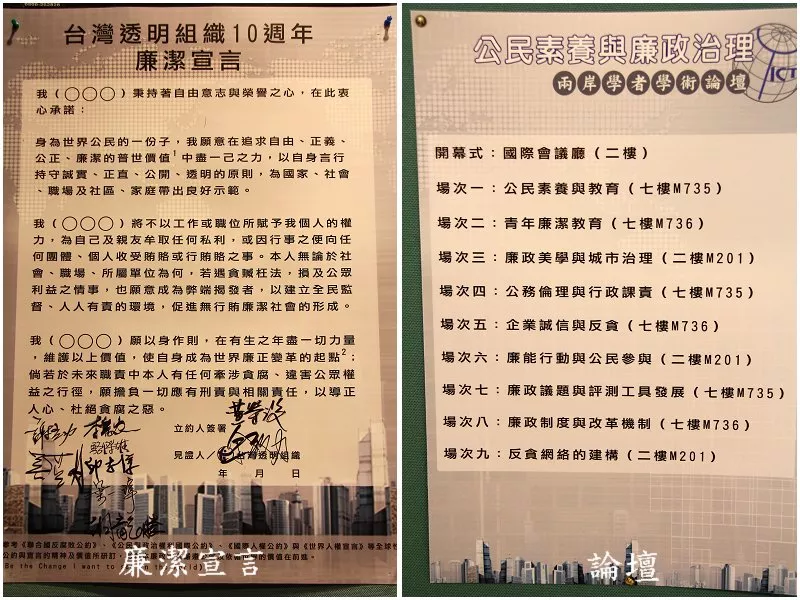 台灣透明組織10週年
廉潔宣言
我（○○○）秉持著自由意志與榮譽之心，在此衷
心承諾：
身為世界公民的一份子，我願意在追求自由、正義、
公正、廉潔的普世價值¹中盡一己之力，以自身言行
持守誠實、正直、公開、透明的原則，為國家、社會
、職場及社區、家庭帶出良好示範。
我（○○○）將不以工作或職位所賦予我個人的權
力，為自己及親友牟取任何私利，或因行事之便向任
何團體、個人收受賄賂或行賄賂之事。本人無論於社
會、職場、所屬單位為何，若遇貪贓枉法，損及公眾
利益之情事，也願意成為弊端揭發者，以建立全民監
督、人人有責的環境，促進無行賄廉潔社會的形成。
我（○○○）願以身作則，在有生之年盡一切力量
，維護以上價值，使自身成為世界廉正變革的起點²；
倘若於未來職責中本人有任何牽涉貪腐、違害公眾權
益之行徑，願擔負一切應有刑責與相關責任，以導正
人心、杜絕貪腐之惡。
立約人簽署
見證人／台灣透明組織
年 月 日
參考《聯合國反腐敗公約》、《公民
國際公約》、《國際人權公約》與《世界人權宣言》等全球性
公約與宣言的精神及價值所研訂
Be the Change I want to
廉潔宣言
公民素養與廉政治理
ICT
兩岸學者學術論壇
開幕式：國際會議廳（二樓）
場次一：公民素養與教育（七樓M735）
場次二：青年廉潔教育（七樓M736）
場次三：廉政美學與城市治理（二樓M201）
場次四：公務倫理與行政課責（七樓M735）
場次五：企業誠信與反貪（七樓M736）
場次六：廉能行動與公民參與（二樓M201）
場次七：廉政議題與評測工具發展（七樓M735）
場次八：廉政制度與改革機制（七樓M736）
場次九：反貪網絡的建構（二樓M201）
論壇